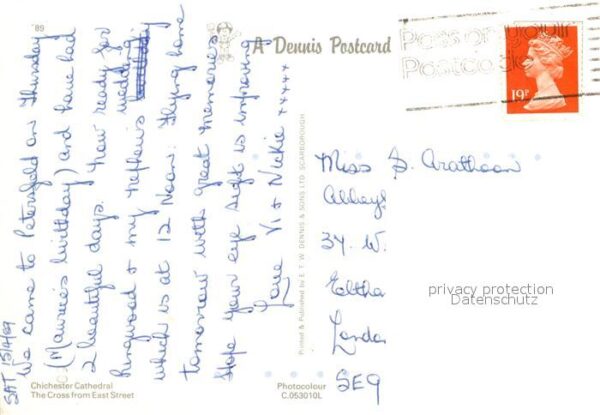 89
SAT 15/4/89
We came to Petersfield on Thursday
(Maurice's birthday) and have had
2 beautiful days. Now ready for
Ringwood & my nephew's wedding
which is at 12 Noon. Flying home
tomorrow with great memories
Hope your eye sight is improving
Love Vi & Nickie xxxxx
A Dennis Postcard
Pass on your
Postcode
19P
Printed & Published by E. T. W. DENNIS & SONS LTD. SCARBOROUGH
Miss D. Arathoon
Abbeyf
34 W.
Eltha
London
SE9
privacy protection
Datenschutz
Chichester Cathedral
The Cross from East Street
Photocolour
C.053010L